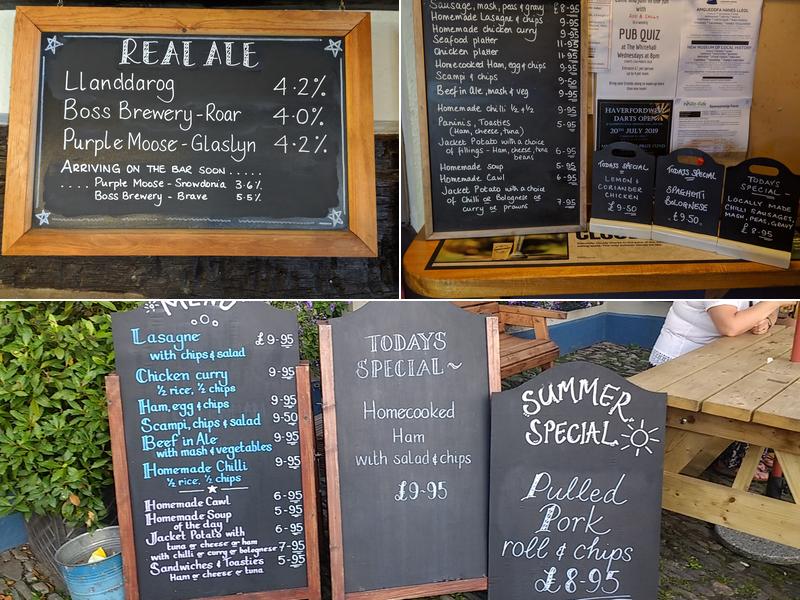 REAL ALE
Llanddarog 4.2%
Boss Brewery - Roar 4.0%
Purple Moose - Glaslyn 4.2%
ARRIVING ON THE BAR SOON .....
.... Purple Moose - Snowdonia 3.6%
Boss Brewery - Brave 5.5%
Sausage, mash, peas & gravy £8-95
Homemade Lasagne & chips 9-95
Homemade chicken curry 9-95
Seafood platter 11-95
Chicken platter 11-95
Homecooked Ham, egg & chips 9-95
Scampi & chips 9-50
Beef in Ale, mash & veg 9-95
Homemade chilli ½ & ½ 9-95
Panini's, Toasties 5-95
(Ham, cheese, tuna)
Jacket Potato with a choice
of fillings - Ham, cheese, tuna 6-95
beans
Homemade soup 5-95
Homemade Cawl 6-95
Jacket Potato with a choice
of Chilli or Bolognese or
curry or prawns 7-95
PUB QUIZ
at The Whitehall
Wednesdays at 8pm
AMGUEDDFA HANES LLEOL
NEW MUSEUM OF LOCAL HISTORY
HAVERFORDWEST
DARTS OPEN
20TH JULY 2019
TODAYS SPECIAL
LEMON &
CORIANDER
CHICKEN
£9-50
TODAYS SPECIAL
SPAGHETTI
BOLOGNESE
£9.50
TODAYS
SPECIAL
LOCALLY MADE
CHILLI SAUSAGES,
MASH, PEAS, GRAVY
£8-95
MENU
Lasagne £9-95
with chips & salad
Chicken curry 9-95
½ rice, ½ chips
Ham, egg & chips 9-95
Scampi, chips & salad 9-50
Beef in Ale 9-95
with mash & vegetables
Homemade Chilli 9-95
½ rice, ½ chips
Homemade Cawl 6-95
Homemade Soup 5-95
of the day
Jacket Potato with 6-95
tuna or cheese or ham
with chilli or curry or bolognese 7-95
Sandwiches & Toasties 5-95
Ham or cheese or tuna
TODAYS
SPECIAL~
Homecooked
Ham
with salad & chips
£9-95
SUMMER
SPECIAL
Pulled
Pork
roll & chips
£8-95